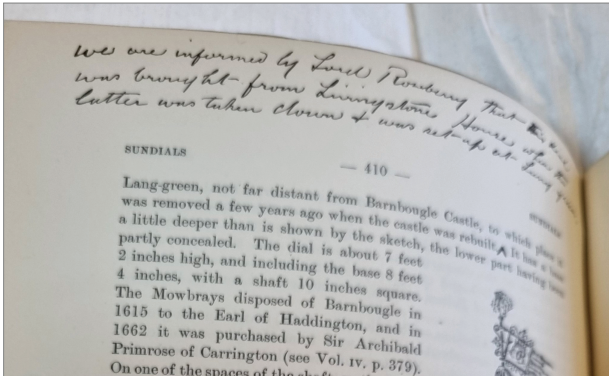 we are informed by Lord Rosebery that this dial
was brought from Livingstone House when the
latter was taken down & was set up at Lang green
SUNDIALS
— 410 —
Lang-green, not far distant from Barnbougle Castle, to which place it
was removed a few years ago when the castle was rebuilt. It has a base
a little deeper than is shown by the sketch, the lower part having been
partly concealed. The dial is about 7 feet
2 inches high, and including the base 8 feet
4 inches, with a shaft 10 inches square.
The Mowbrays disposed of Barnbougle in
1615 to the Earl of Haddington, and in
1662 it was purchased by Sir Archibald
Primrose of Carrington (see Vol. IV. p. 379).
On one of the spaces of the shaft